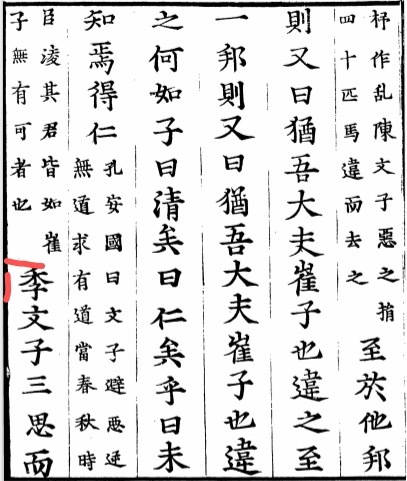 杼作乱陳文子惡之捐
四十匹馬違而去之
至於他邦
則又曰猶吾大夫崔子也違之至
一邦則又曰猶吾大夫崔子也違
之何如子曰清矣曰仁矣乎曰未
知焉得仁
孔安國曰文子避惡逆
無道求有道當春秋時
臣淩其君皆如崔
子無有可者也
季文子三思而